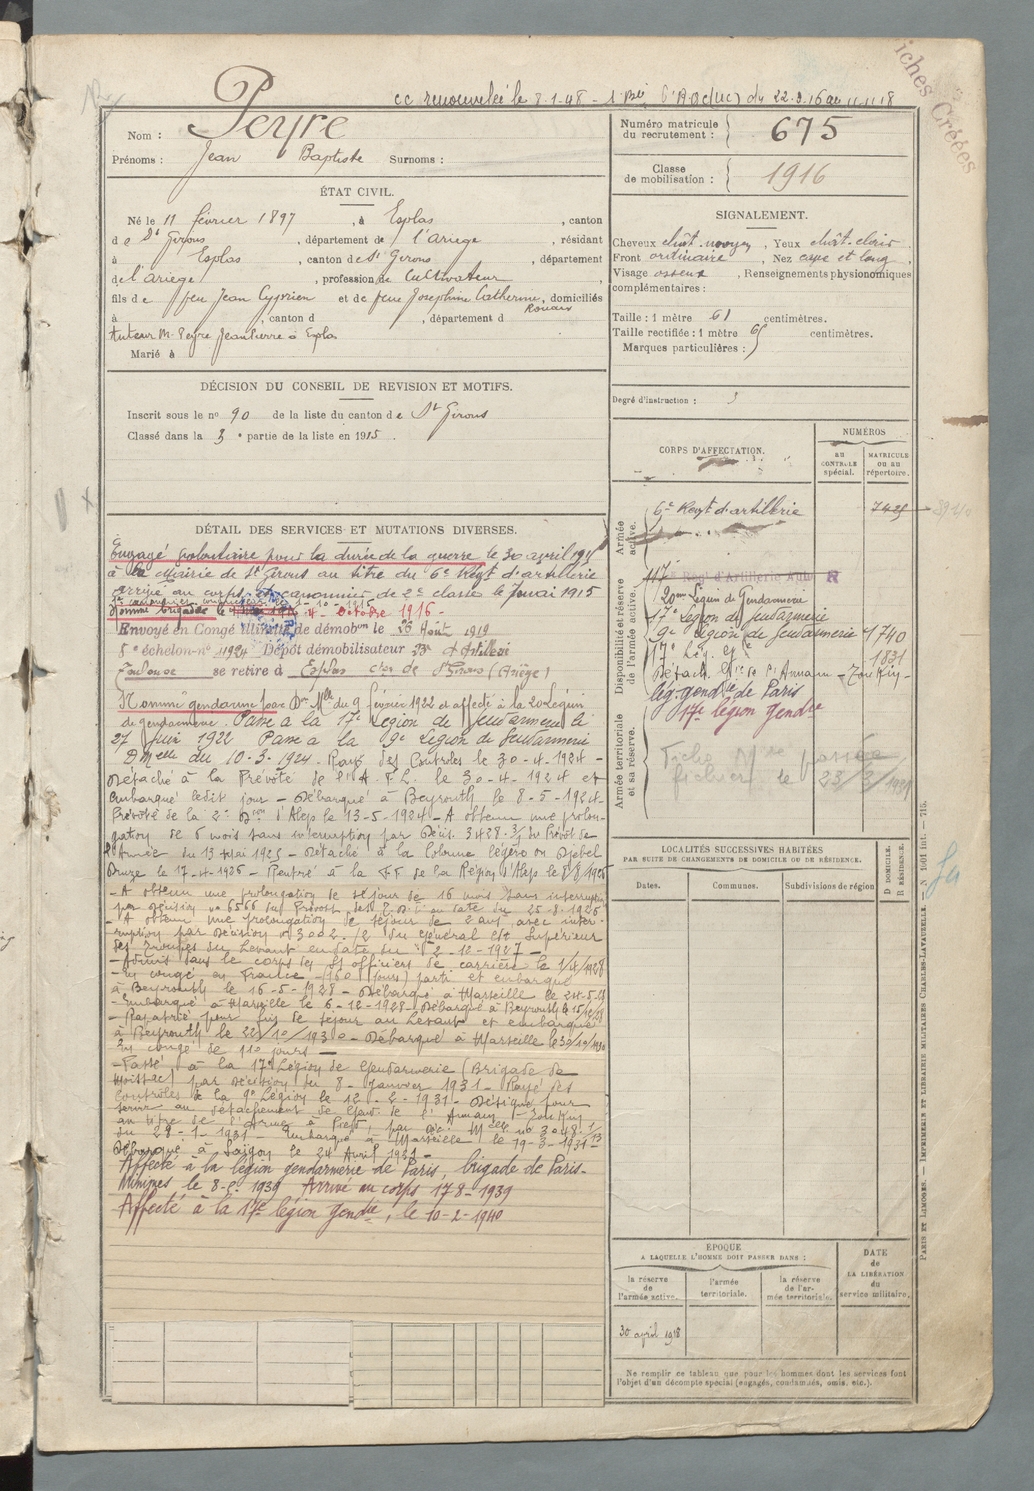 cc renouvelée le 8-1-48 - 1
Fiches Créées
Peyre
Nom :
Prénoms : Jean Baptiste Surnoms :
Numéro matricule du recrutement : 675
Classe de mobilisation : 1916
ÉTAT CIVIL.
Né le 11 février 1897, à Esplas, canton
de St Girons, département de l'ariege, résidant
à Esplas, canton de St Girons, département
de l'ariege, profession de Cultivateur
fils de feu Jean Cyprien et de feue Josephine Catherine Rouaix, domiciliés
à , canton d , département d
tuteur M. Peyre Jean Pierre à Esplas
Marié à
SIGNALEMENT.
Cheveux chât. moyen, Yeux chât. clair
Front ordinaire, Nez cave et long
Visage osseux, Renseignements physionomiques
complémentaires :
Taille : 1 mètre 61 centimètres.
Taille rectifiée : 1 mètre 65 centimètres.
Marques particulières :
Degré d'instruction : 3
DÉCISION DU CONSEIL DE REVISION ET MOTIFS.
Inscrit sous le no 90 de la liste du canton de St Girons
Classé dans la 3e partie de la liste en 1915.
DÉTAIL DES SERVICES ET MUTATIONS DIVERSES.
Engagé volontaire pour la durée de la guerre le 30 avril 1915
à la Mairie de St Girons au titre du 6e Regt d'artillerie
arrivé au corps et canonnier de 2e classe le 1 mai 1915
Nommé brigadier le 4 Octobre 1916 -
Envoyé en Congé illimité de démobon le 26 Août 1919
5e échelon no 11924 Dépôt démobilisateur 23e d'Artillerie
Toulouse se retire à Esplas cton de St Girons (Ariège)
Nommé gendarme par Don Mlle du 9 février 1922 et affecté à la 20e Légion
de gendarmerie. Passé à la 17e Légion de Gendarmerie le
27 Juin 1922 Passé à la 9e Légion de Gendarmerie
Dmelle du 10-3-1924. Rayé des Contrôles le 30-4-1924 -
Détaché à la Prévôté de l'A.F.L. le 30-4-1924 et
embarqué ledit jour - Débarqué à Beyrouth le 8-5-1924
Prévôté de la 2e Don d'Alep le 13-5-1924 - A obtenu une prolon-
gation de 6 mois sans interruption par Décis. 3428.3/ du Prévôt de
l'Armée du 13 Mai 1925 - Détaché à la Colonne légère du Djebel
Druze le 17-4-1926 - Rentré à la FF de la Région d'Alep le
- A obtenu une prolongation de séjour de 16 mois sans interruption
par décision no 6566 du Prévôt des en date du 25-8-1926
- A obtenu une prolongation de séjour de 2 ans avec inter-
ruption par décision no 3002/2 du Général Cdt Supérieur
des Troupes du Levant en date du 2-12-1927 -
- Admis dans le corps des Ss officiers de carrière le 1/4/1928
- En congé en France (160 jours) parti et embarqué
à Beyrouth le 16-5-1928 - Débarqué à Marseille le 24-5-28
- Embarqué à Marseille le 6-12-1928 - Débarqué à Beyrouth le 15/12/28
- Rapatrié pour fin de séjour au Levant et embarqué
à Beyrouth le 22/10/1930 - Débarqué à Marseille le 30/10/1930
En congé de 110 jours -
- Passé à la 17e Légion de Gendarmerie (Brigade de
Moissac) par décision du 8 Janvier 1931 - Rayé des
contrôles de la 9e Légion le 12-2-1931 - Désigné pour
servir au détachement de Gend. de l'Annam
du 28-1-1931 - Embarqué à Marseille le 19-3-1931
Débarqué à Saïgon le 24 Avril 1931 -
Affecté à la légion gendarmerie de Paris, brigade de Paris-
Minimes le 8-8-1939 Arrivé au corps 17-8-1939
Affecté à la 17e légion Gendie, le 10-2-1940
CORPS D'AFFECTATION.
NUMÉROS
AU CONTROLE spécial.
MATRICULE ou au répertoire.
Armée active.
6e Regt d'artillerie 7425
Disponibilité et réserve de l'armée active.
117e Regt d'Artillerie R
20me Légion de Gendarmerie
17e Légion de Gendarmerie
9e Légion de Gendarmerie 1740
17e Lég. 1831
Détach. de l'Annam -
lég. gendie de Paris
17e légion Gendie
Armée territoriale et sa réserve.
Fiche passée
fichier le 23/3/
LOCALITÉS SUCCESSIVES HABITÉES
PAR SUITE DE CHANGEMENTS DE DOMICILE OU DE RÉSIDENCE.
Dates.
Communes.
Subdivisions de région
D DOMICILE.
R RÉSIDENCE.
ÉPOQUE
A LAQUELLE L'HOMME DOIT PASSER DANS :
la réserve de l'armée active.
l'armée territoriale.
la réserve de l'armée territoriale.
DATE de LA LIBÉRATION du service militaire.
30 avril 1918
Ne remplir ce tableau que pour les hommes dont les services font
l'objet d'un décompte spécial (engagés, condamnés, omis, etc.).
PARIS ET LIMOGES. — IMPRIMERIE ET LIBRAIRIE MILITAIRES CHARLES-LAVAUZELLE. — N 1001 Int. — 715.